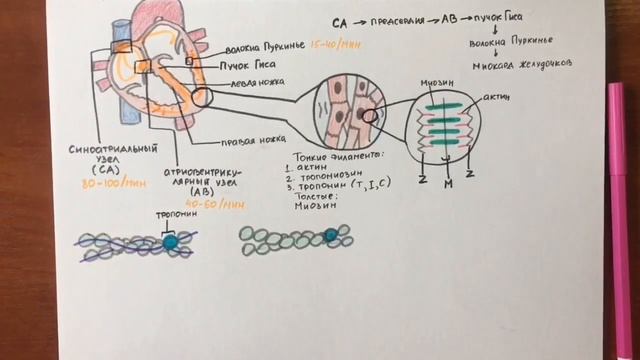 СА → предсердия → АВ → пучок Гиса
↓
волокна Пуркинье
↓
миокард желудочков
волокна Пуркинье 15-40/мин
Пучок Гиса
левая ножка
правая ножка
Синоатриальный
узел
(СА)
80-100/мин
атриовентрику-
лярный узел
(АВ)
40-60/мин
миозин
актин
Z
M
Z
Тонкие филаменты:
1. актин
2. тропомиозин
3. тропонин (Т, I, С)
Толстые:
Миозин
тропонин